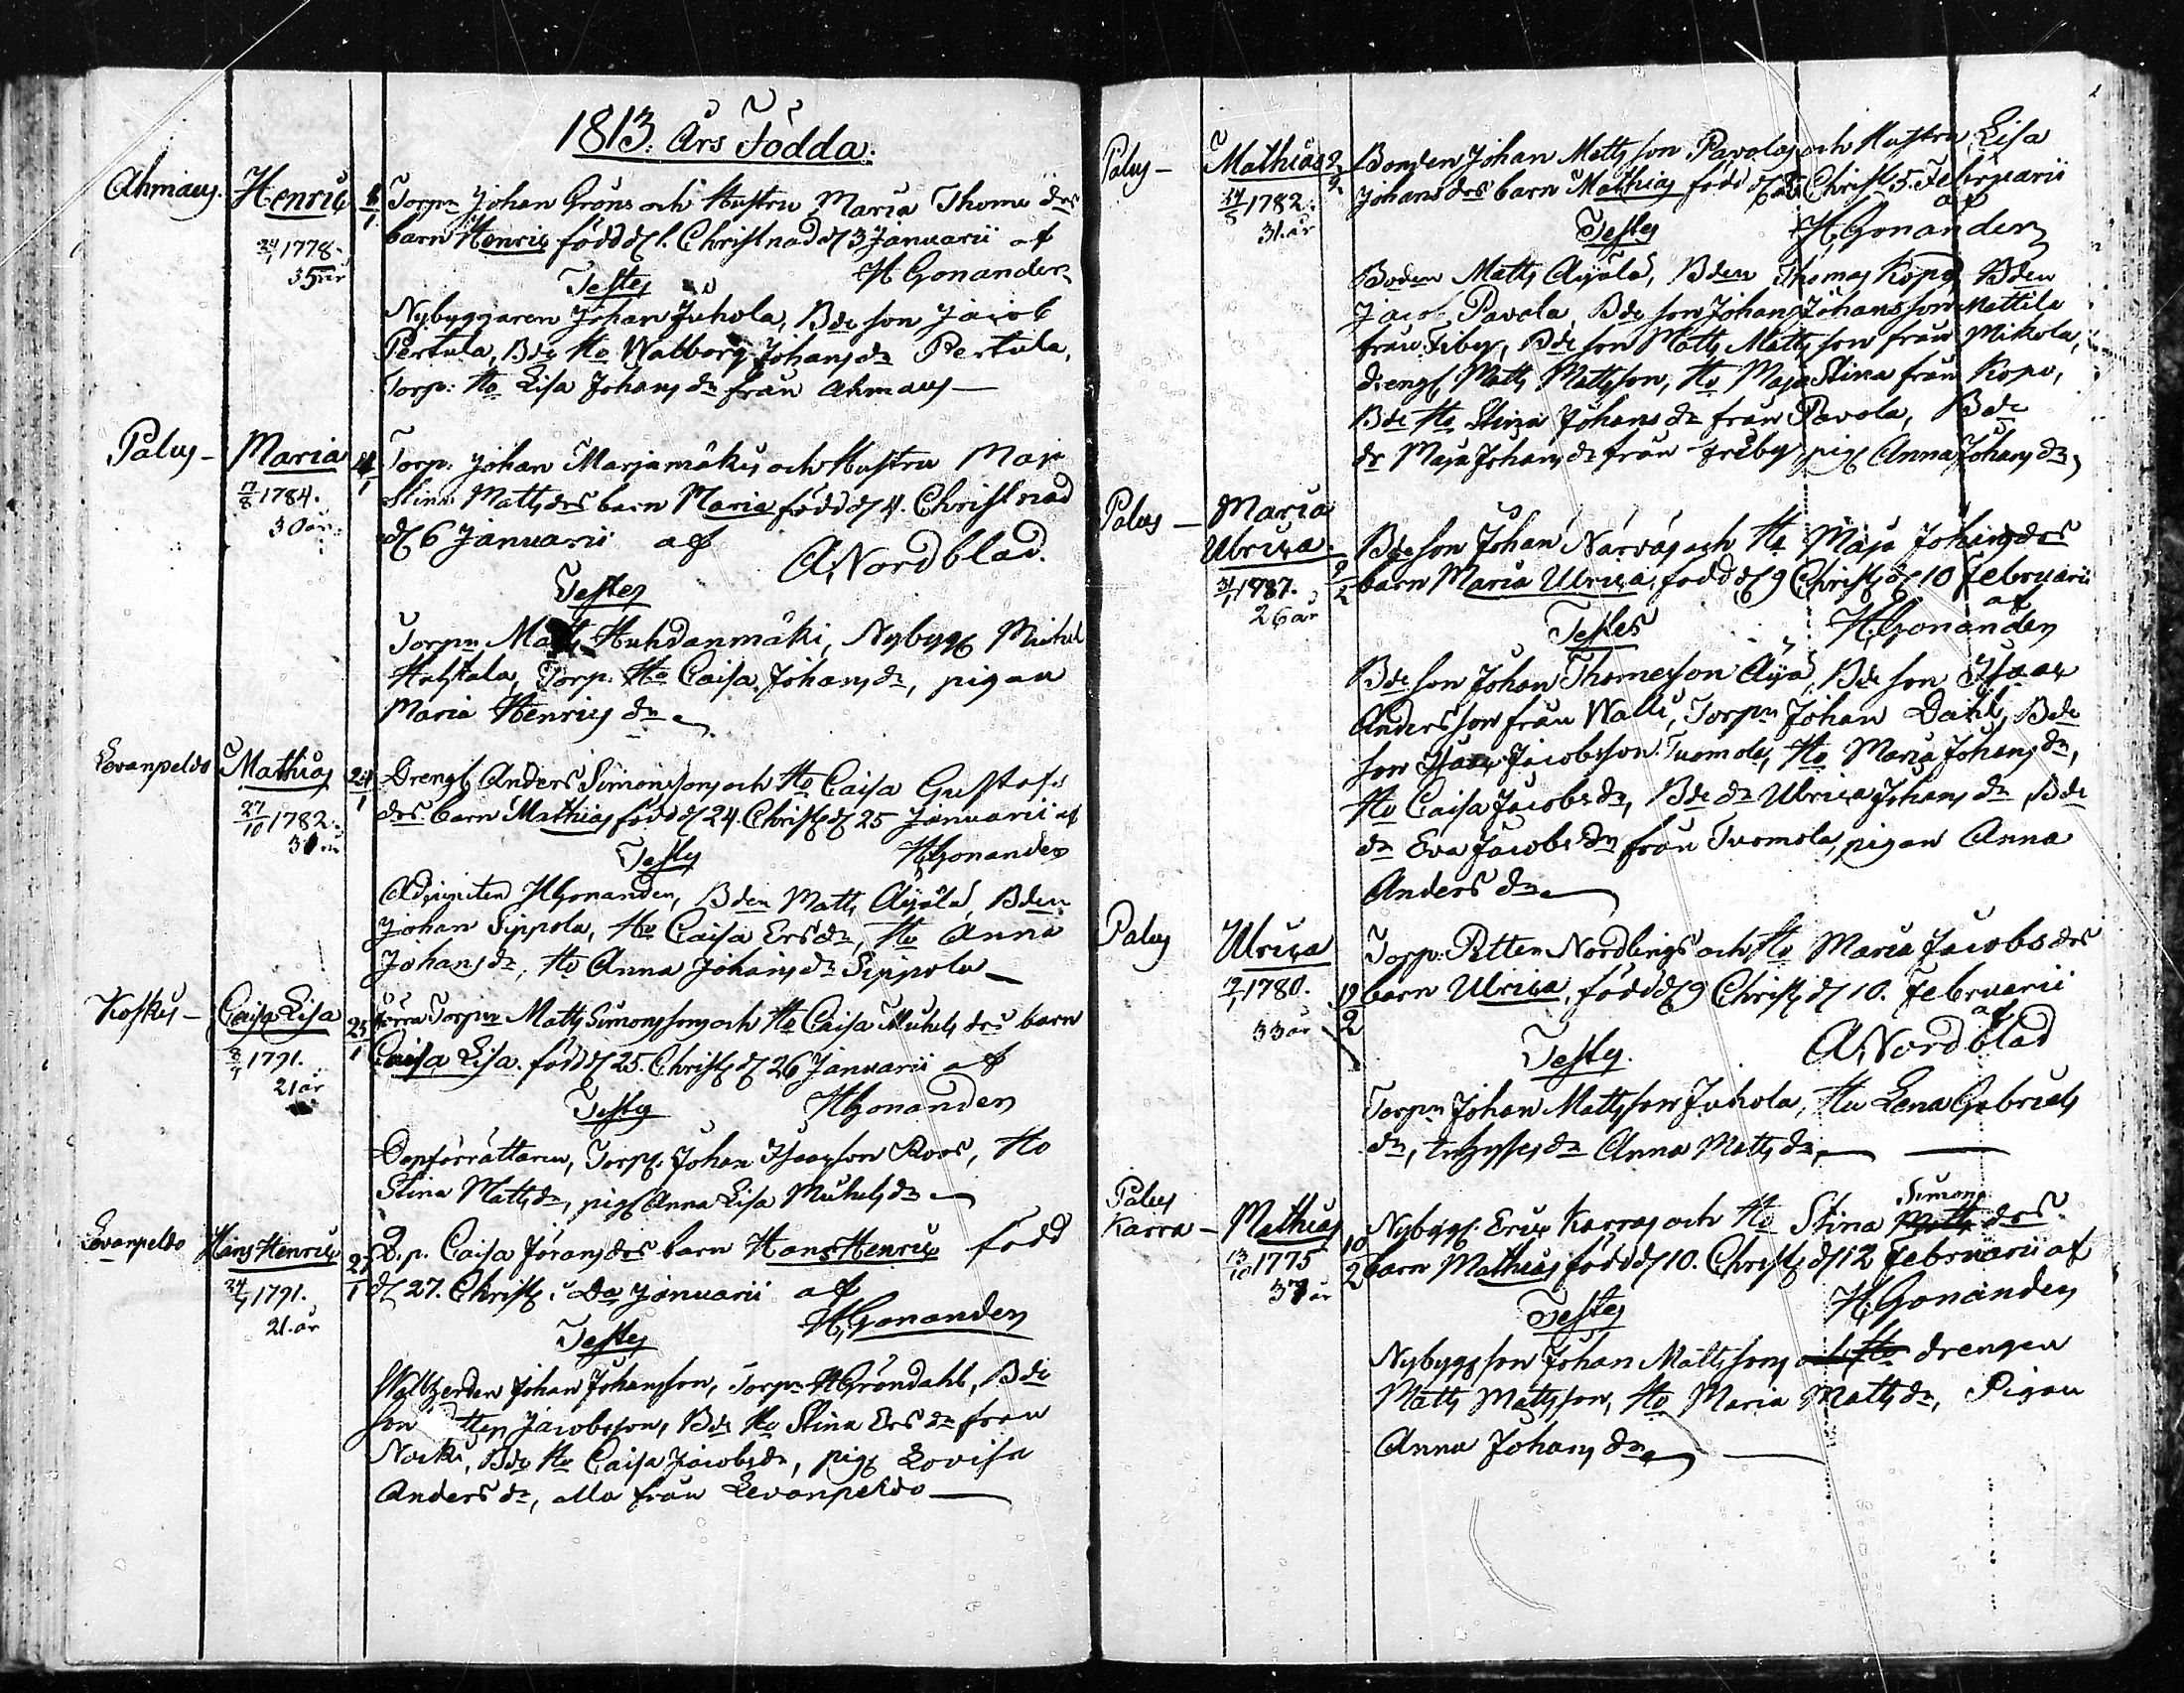 1813. Års Födda.
Ahmaus. Henric 1/1 Torpn Johan Gröns och Hustru Maria Thomæ drs
24/1 1778. barn Henric född d 1. Christnad d 3 Januarii af
35 år
Testes H Gonander
Nybyggaren Johan Juhola, Bde son Jacob
Pertula, Bds Ho Walborg Johans dr Pertula,
Torp: Ho Lisa Johans dr från Ahmaus —
Palus — Maria 4/1 Torp: Johan Marjamäkis och Hustru Maja
17/8 1784. Stina Matts drs barn Maria född d 4. Christnad
30 år. d 6 Januarii af
A Nordblad.
Testes
Torpn Matts Huhdanmäki, Nybygg Michel
Torp. Ho Caisa Johans dr, pigan
Maria Henrics dr
Levanpeldo Mathias 24/1 Drengs Anders Simonssons och Ho Caisa Gustafs
27/10 1782. drs barn Mathias född d 24. Christ d 25 Januarii af
Testes H Gonander
Adjuncten H Gonander, Bden Matts Äijälä, Bden
Johan Sippola, Ho Caisa Ers dr, Ho Anna
Johans dr, Ho Anna Johans dr Sippola —
Koskis — Caisa Lisa 25/1 Torpn Matts Simonssons och Ho Caisa Michels drs barn
1791. Caisa Lisa. född d 25. Christ d 26 Januarii af
21 år
Testes H Gonander
Dopförrättaren, Torp. Johan Isacsson Roos, Ho
Stina Matts dr, pig Anna Lisa Michels dr —
Levanpeldo Hans Henric 27/1 Q.p. Caisa Jörans drs barn Hans Henric född
24/1 1791. d 27. Christ: Do Januarii af
21. år
Testes H Gonander
Johan Johansson, Torpn H Gröndahl, Bde
son Petter Jacobsson, Bds Ho Stina Ers dr från
Bds Ho Caisa Jacobs dr, pig Lovisa
Anders dr, alla från Levanpeldo —
Palus — Mathias 2/2 Bonden Johan Mattsson Pavolas och Hustru Lisa
1782. Johans drs barn Mathias född d Christ 5. Februarii
31. år af
Testes H Gonander
Bonden Matts Äijälä, Bden Thomas Kopo, Bden
Jacob Pavola, Bde son Johan Johansson Mattila
från Friby, Bde son Matts Mattsson från Mikola,
drengs Matts Mattsson, Ho Maja Stina från Kopo,
Bde Ho Stina Johans dr från Pavola, Bde
dr Maja Johans dr från Friby pig Anna Johans dr
Palus — Maria
Ulrica 9/2 Bde son Johan Närväs och Ho Maja Johans drs
31/1 1787. barn Maria Ulrica, född d 9 Christ d 10 Februarii
26 år af
Testes H Gonander
Bde son Johan Thomesson Äijä, Bde son Isaac
Andersson från Walli, Torpn Johan Dahl, Bde
son Isaac Jacobsson Tuomola, Ho Maria Johans dr,
Ho Caisa Jacobs dr, Bde dr Ulrica Johans dr, Bde
dr Eva Jacobs dr från Tuomola, pigan Anna
Anders dr —
Palus Ulrica 9/2 Torp: Petter Nordlings och Ho Maria Jacobs drs
1780. barn Ulrica, född d 9 Christ d 10. Februarii
33 år af
Testes. A Nordblad
Torpn Johan Mattsson Juhola, Hu Lena Gabriels
dr, dr Anna Matts dr, —
Palus
Karra — Mathias 10/2 Nybygg. Eric Karras och Ho Stina Matts Simons drs
13/10 1775 barn Mathias född d 10. Christ d 12 Februarii af
37 år
Testes H Gonander
Nybygg son Johan Mattsson och Ho drengen
Matts Mattsson, Ho Maria Matts dr, Pigan
Anna Johans dr —